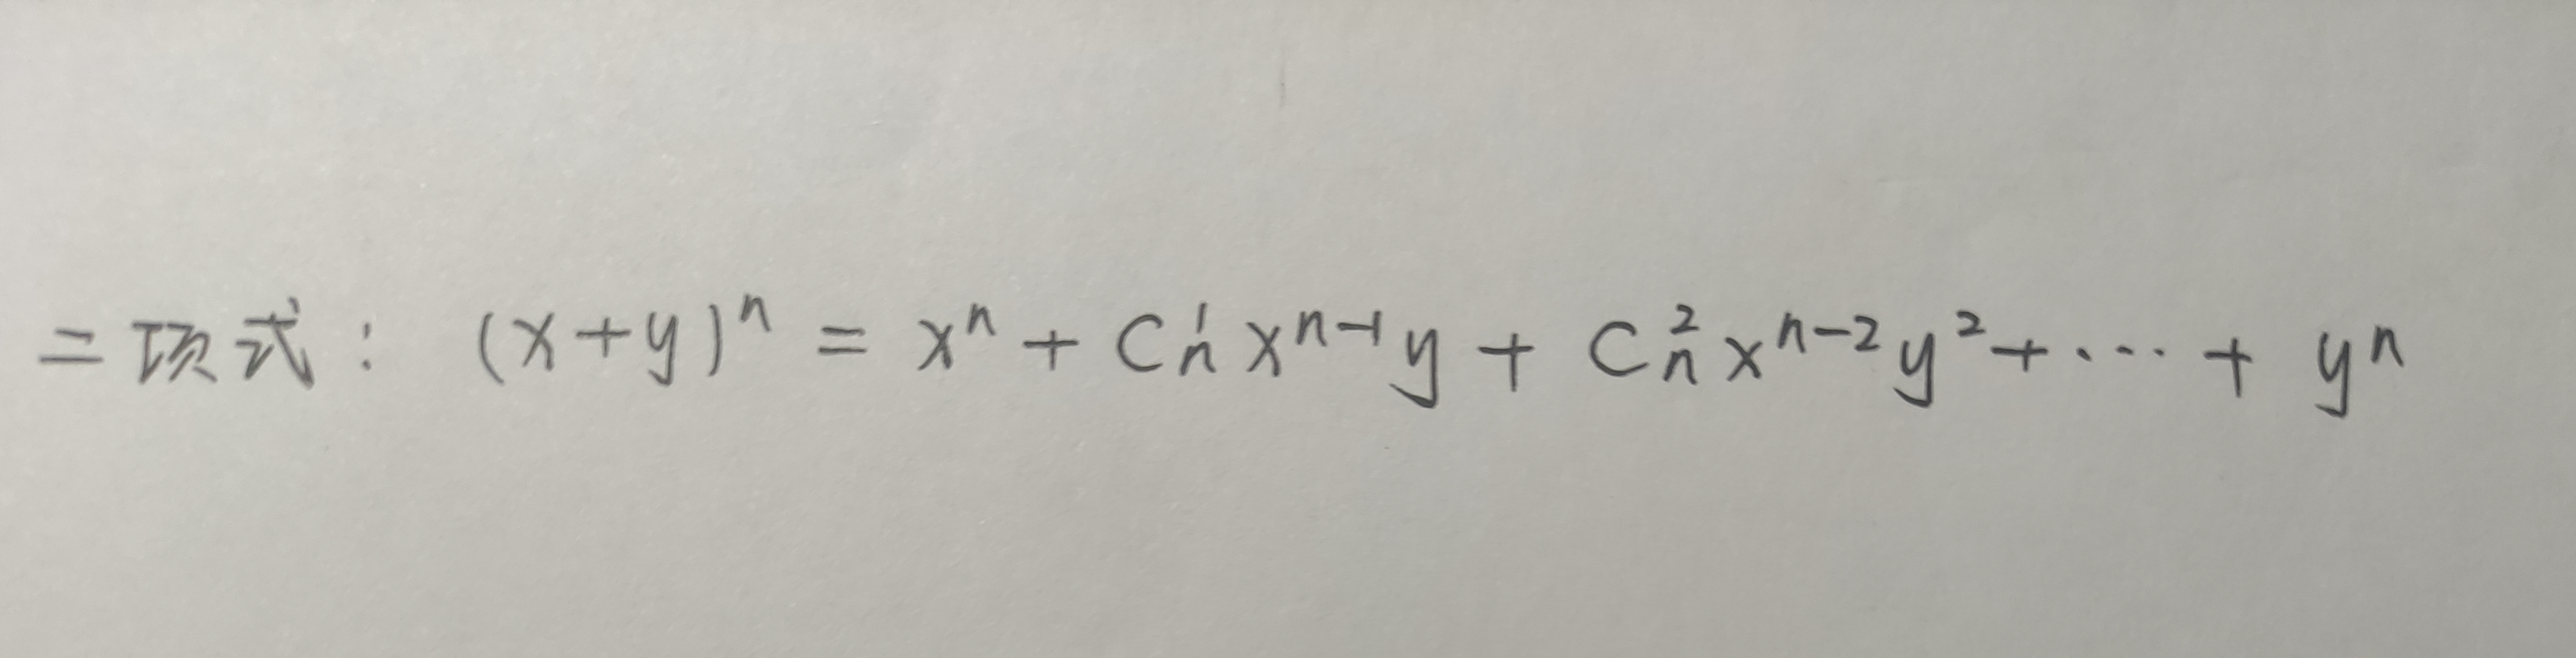 二项式: (x+y)ⁿ = xⁿ + Cₙ¹xⁿ⁻¹y + Cₙ²xⁿ⁻²y² + ··· + yⁿ